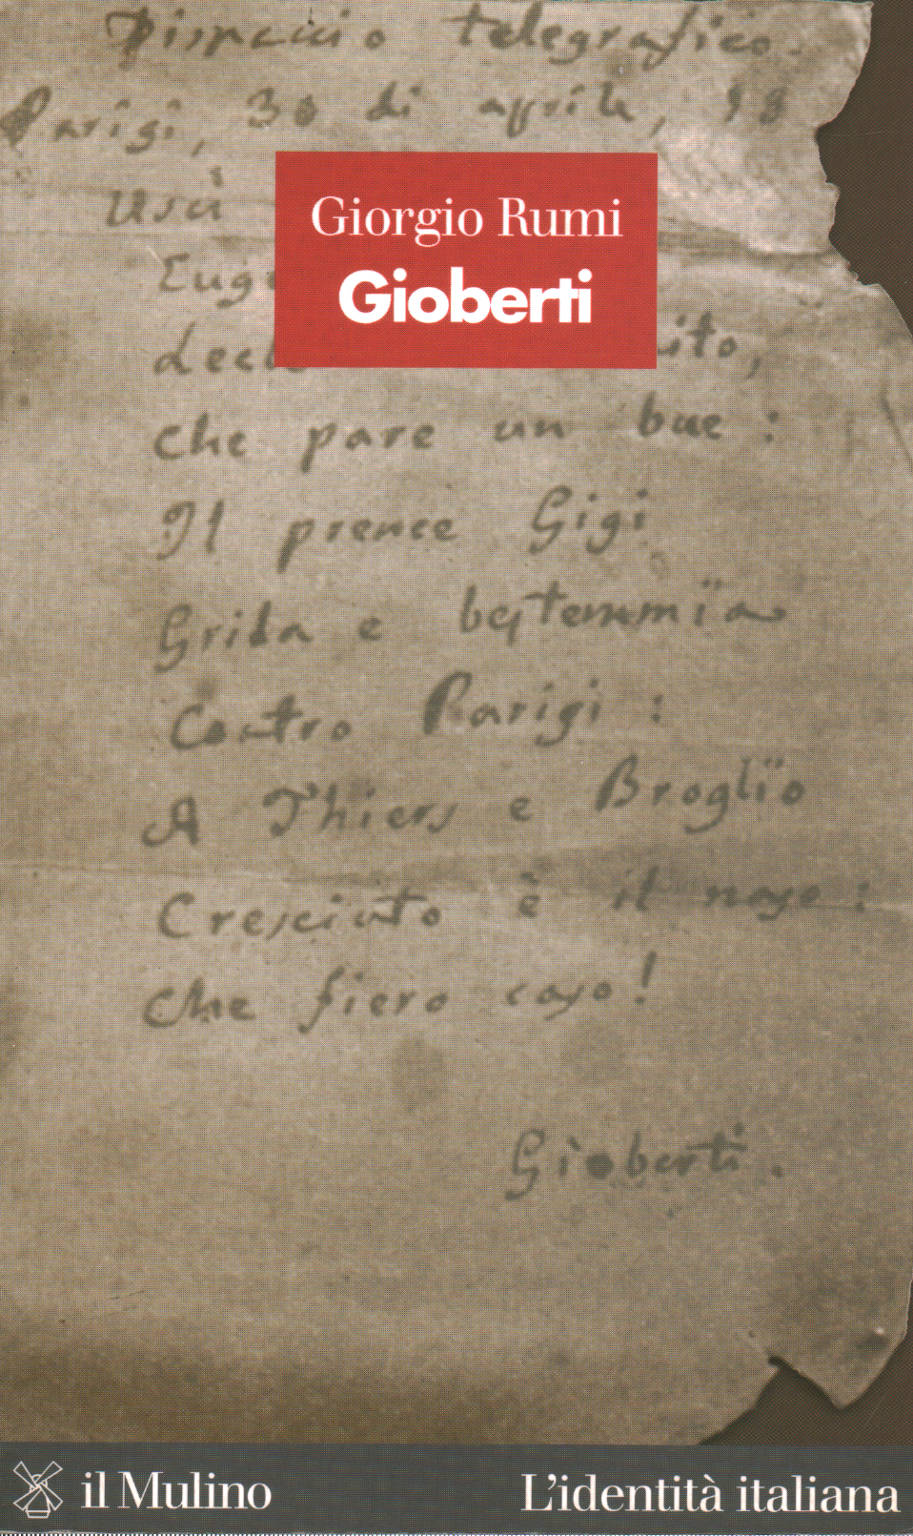 Dispaccio telegrafico.
Parigi, 30 di aprile, 18
Usù
Giorgio Rumi
Gioberti
Eug
ito,
che pare un bue:
Il prence Gigi
Grida e bestemmïa
Contro Parigi:
A Thiers e Broglïo
Cresciuto è il naso:
Che fiero caso!
Gioberti.
il Mulino
L'identità italiana